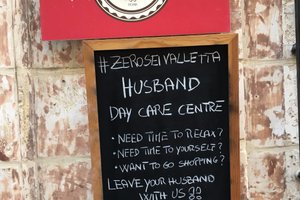 #ZEROSEIVALLETTA
HUSBAND
DAY CARE CENTRE
• NEED TIME TO RELAX?
• NEED TIME TO YOURSELF?
• WANT TO GO SHOPPING?
LEAVE YOUR HUSBAND
WITH US !!